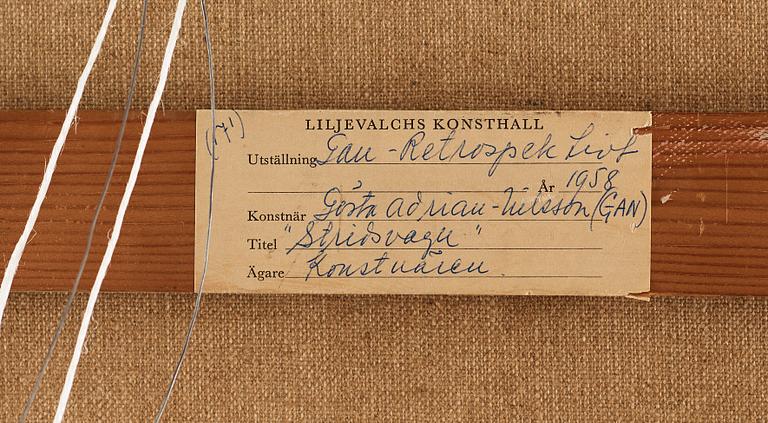 (171)
LILJEVALCHS KONSTHALL
Utställning Gan - Retrospektivt
År 1958
Konstnär Gösta Adrian-Nilsson (GAN)
Titel "Stridsvagn"
Ägare Konstnären.